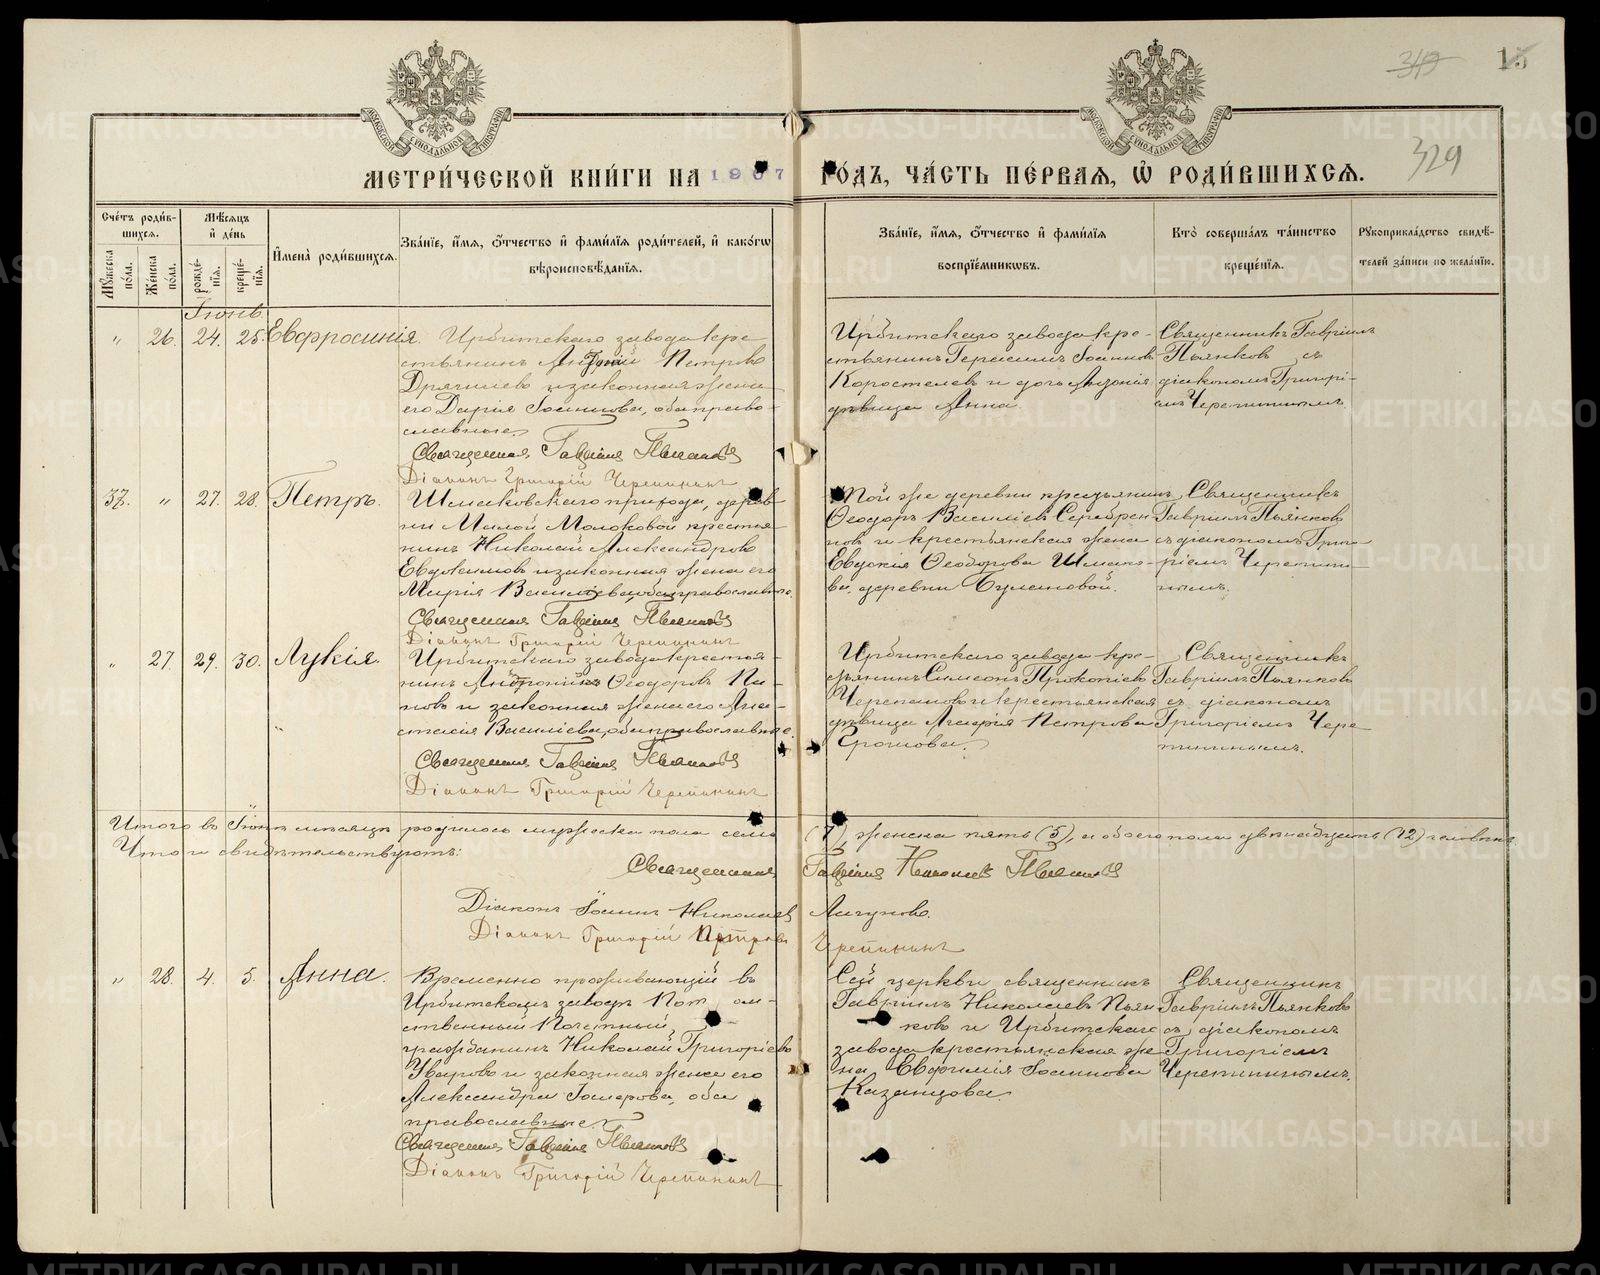 МЕТРИ́ЧЕСКОЙ КНИ́ГИ НА 1907 ГО́ДЪ, ЧА́СТЬ ПЕ́РВАЯ, Ѡ РОДИ́ВШИХСЯ.
15
329
Сче́тъ роди́в-
шихся.
Мѣ́сяцъ
и де́нь
Му́жеска по́ла.
Же́нска по́ла.
рожде́-
нія.
креще́-
нія.
Имена̀ роди́вшихся.
Зва́ніе, и́мя, о́тчество и фами́лія роди́телей, и како́гѡ
вѣроисповѣ́данія.
Зва́ніе, и́мя, о́тчество и фами́лія
воспріе́мникѡвъ.
Кто̀ соверша́лъ та́инство
креще́нія.
Рукоприкла́дство свидѣ́-
телей за́писи по жела́нію.
Іюнь.
" 26. 24. 25. Евфросинія.
Ирбитскаго завода кре-
стьянинъ Петровъ
и законная жена
его Дарія Іоаннова, оба право-
славные.
Священникъ Гавріилъ Пьянковъ
Діаконъ Григорій Черепининъ
Ирбитскаго завода кре-
стьянинъ Герасимъ Іоанновъ
Коростелевъ и дочь діакона
дѣвица Анна.
Священникъ Гавріилъ
Пьянковъ съ
діакономъ Григорі-
емъ Черепининымъ.
37. " 27. 28. Петръ.
Шмаковскаго прихода, дерев-
ни Малой Молоковой крестья-
нинъ Николай Александровъ
Евдокимовъ и законная жена его
Марія Васильева, оба православные.
Священникъ Гавріилъ Пьянковъ
Діаконъ Григорій Черепининъ
Той же деревни крестьянинъ
Ѳеодоръ Василіевъ Серебрен-
ковъ и крестьянская жена
Евдокія Ѳеодорова Шмако-
ва, деревни Булановой.
Священникъ
Гавріилъ Пьянковъ
съ діакономъ Григо-
ріемъ Черепини-
нымъ.
" 27. 29. 30. Лукія.
Ирбитскаго завода крестья-
нинъ Ѳеодоровъ Па-
новъ и законная жена его Ана-
стасія Василіева, оба православные.
Священникъ Гавріилъ Пьянковъ
Діаконъ Григорій Черепининъ
Ирбитскаго завода кре-
стьянинъ Симеонъ Прокопіевъ
Черепановъ и крестьянская
дѣвица Агафія Петрова
Ерохова.
Священникъ
Гавріилъ Пьянковъ
съ діакономъ
Григоріемъ Чере-
пининымъ.
Итого въ Іюнѣ мѣсяцѣ родилось мужеска пола семь (7), женска пять (5), а обоего пола двѣнадцать (12) человѣкъ.
Что и свидѣтельствуютъ:
Священникъ Гавріилъ Николаевъ Пьянковъ
Діаконъ Іоаннъ Николаевъ Лагуновъ.
Діаконъ Григорій Петровъ Черепининъ
" 28. 4. 5. Анна.
Временно проживающій въ
Ирбитскомъ заводѣ Пот ом-
ственный Почетный
гражданинъ Николай Григоріевъ
Уваровъ и законная жена его
Александра, оба
православные.
Священникъ Гавріилъ Пьянковъ
Діаконъ Григорій Черепининъ
Сей церкви священникъ
Гавріилъ Николаевъ Пьян-
ковъ и Ирбитскаго
завода крестьянская же-
на Евфимія Іоаннова
Казанцова.
Священникъ
Гавріилъ Пьянковъ
съ діакономъ
Григоріемъ
Черепининымъ.
METRIKI.GASO-URAL.RU